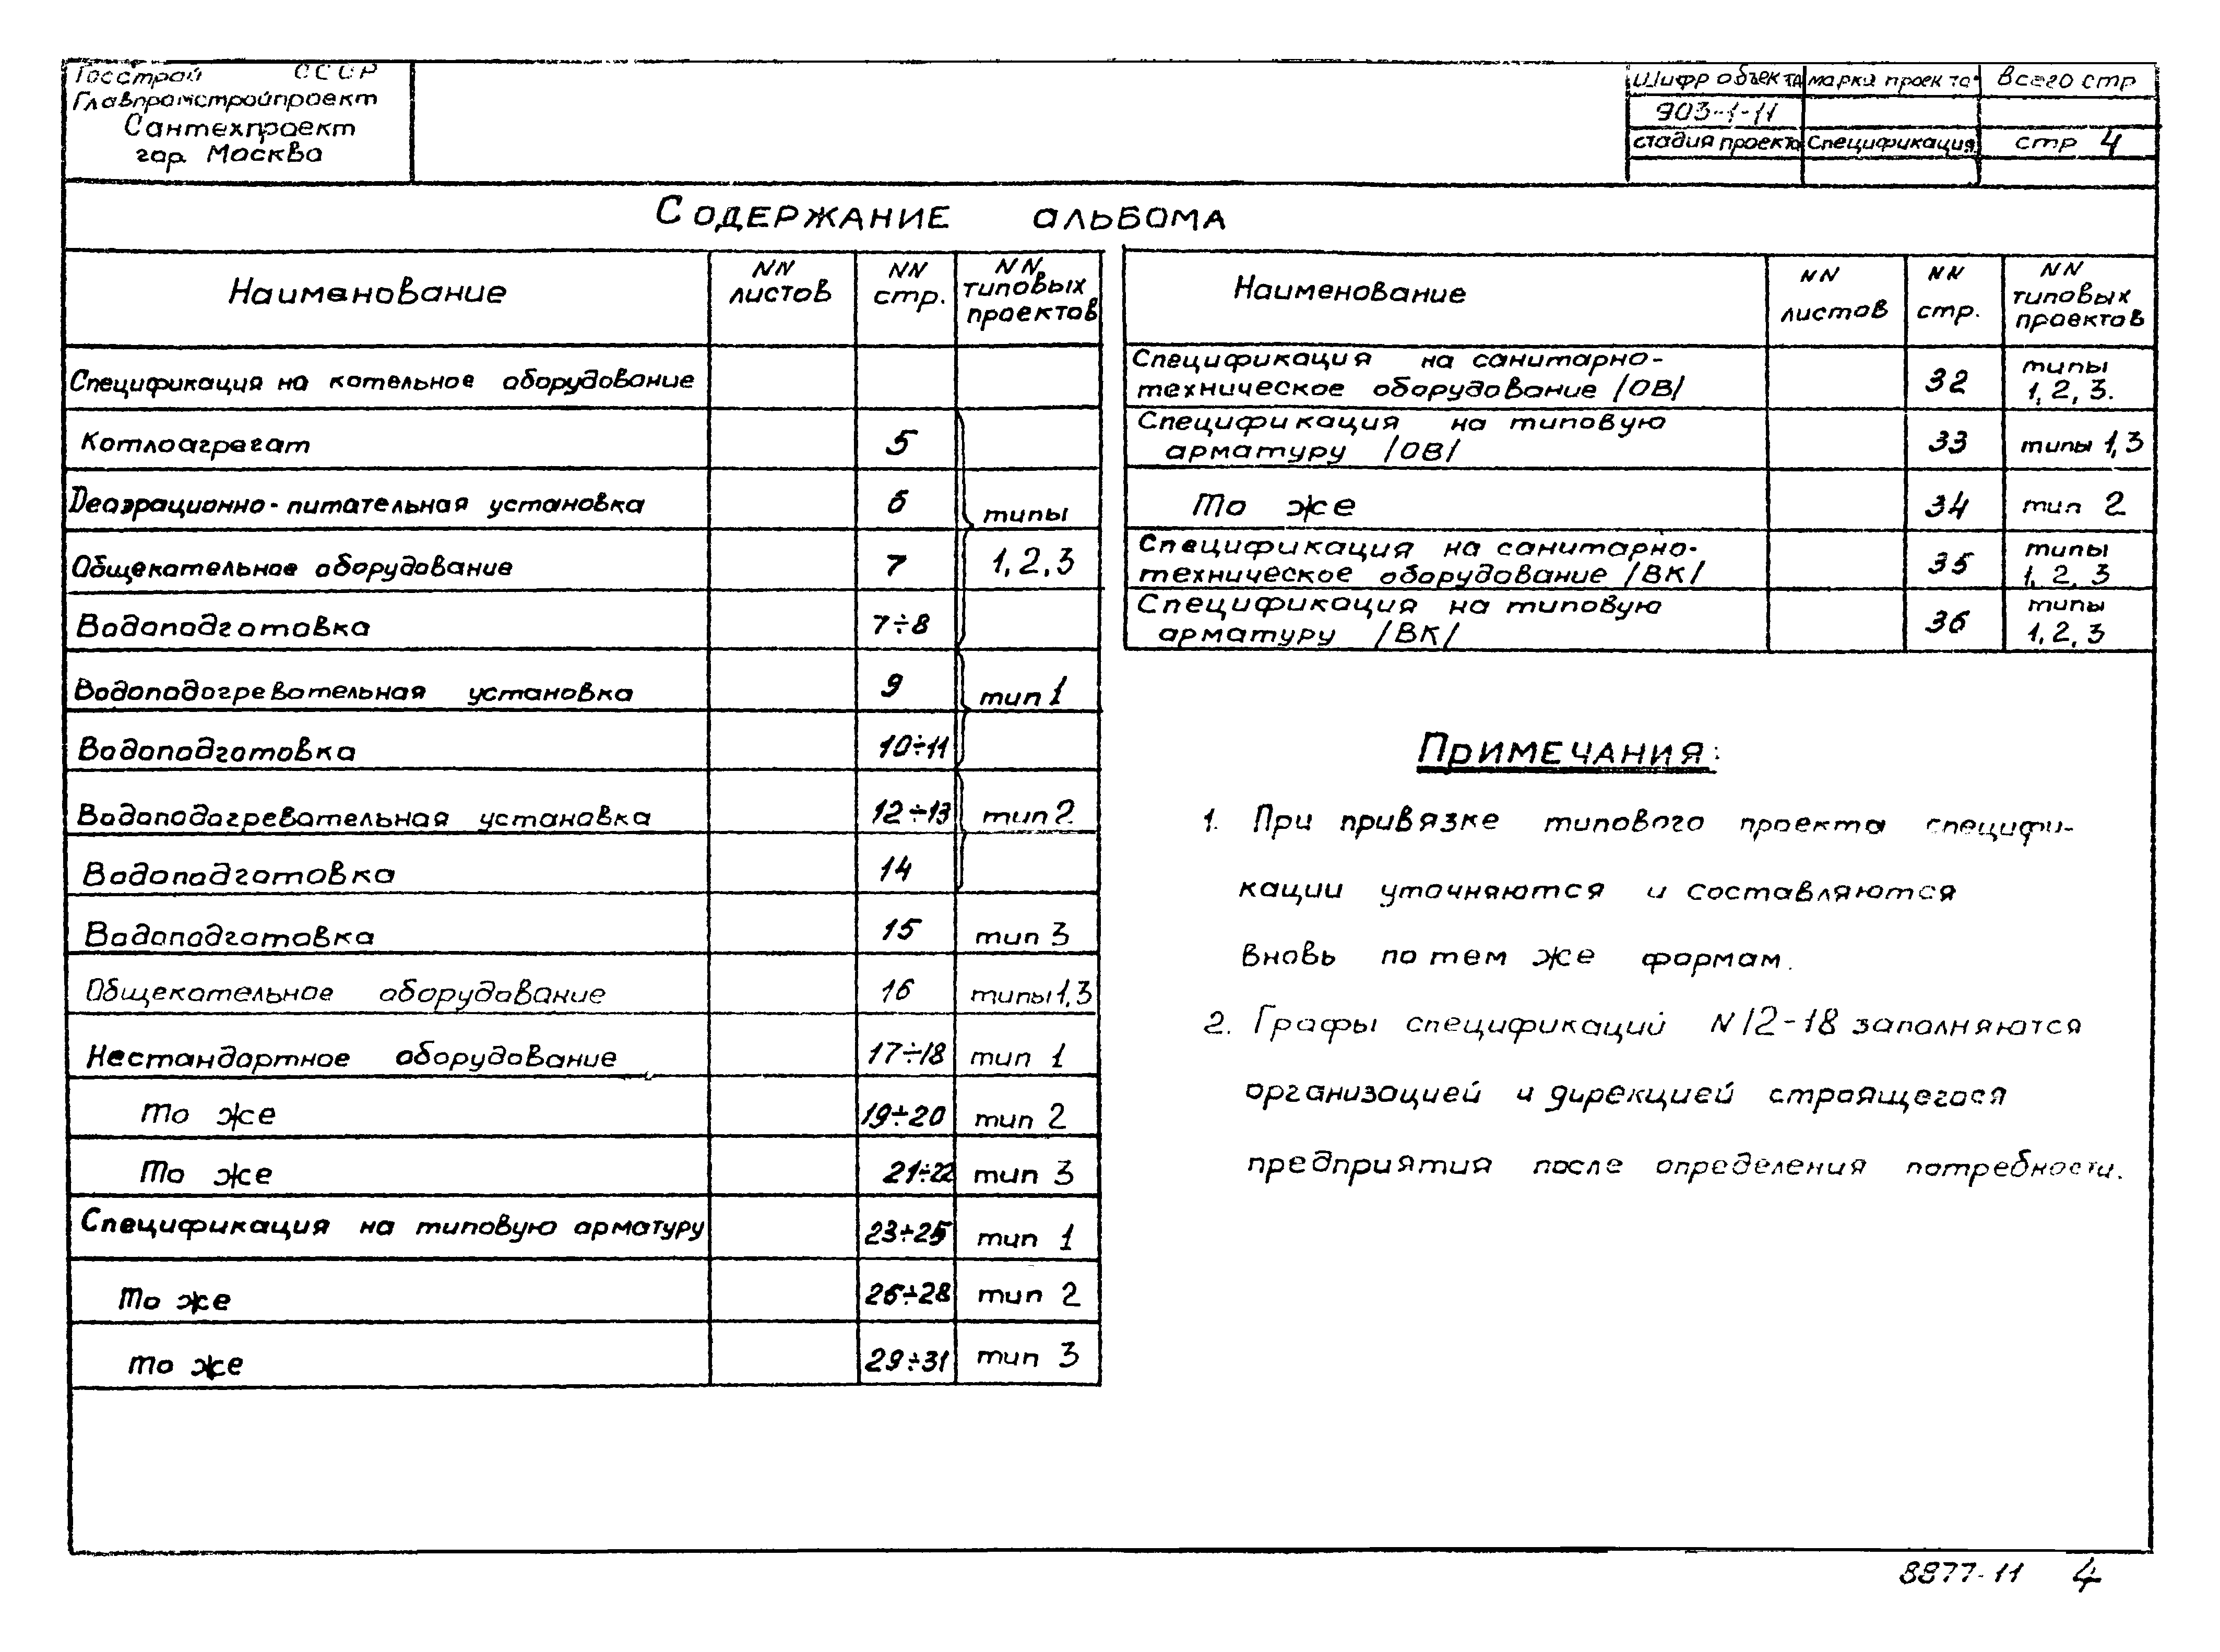 Госстрой СССР
Главпромстройпроект
Сантехпроект
гор. Москва
Шифр объекта марка проекта Всего стр
903-1-11
стадия проекта Спецификация стр 4
СОДЕРЖАНИЕ АЛЬБОМА
Наименование NN листов NN стр. NN типовых проектов
Спецификация на котельное оборудование
Котлоагрегат 5
Деаэрационно-питательная установка 6 типы
Общекотельное оборудование 7 1, 2, 3
Водоподготовка 7÷8
Водоподогревательная установка 9 тип 1
Водоподготовка 10÷11
Водоподогревательная установка 12÷13 тип 2
Водоподготовка 14
Водоподготовка 15 тип 3
Общекотельное оборудование 16 типы 1,3
Нестандартное оборудование 17÷18 тип 1
То же 19÷20 тип 2
То же 21÷22 тип 3
Спецификация на типовую арматуру 23÷25 тип 1
То же 26÷28 тип 2
То же 29÷31 тип 3
Наименование NN листов NN стр. NN типовых проектов
Спецификация на санитарно-
техническое оборудование /ОВ/ 32 типы 1, 2, 3.
Спецификация на типовую
арматуру /ОВ/ 33 типы 1,3
То же 34 тип 2
Спецификация на санитарно-
техническое оборудование /ВК/ 35 типы 1, 2, 3
Спецификация на типовую
арматуру /ВК/ 36 типы 1, 2, 3
ПРИМЕЧАНИЯ:
1. При привязке типового проекта специфи-
кации уточняются и составляются
вновь по тем же формам.
2. Графы спецификаций N 12-18 заполняются
организацией и дирекцией строящегося
предприятия после определения потребности.
8877-11 4